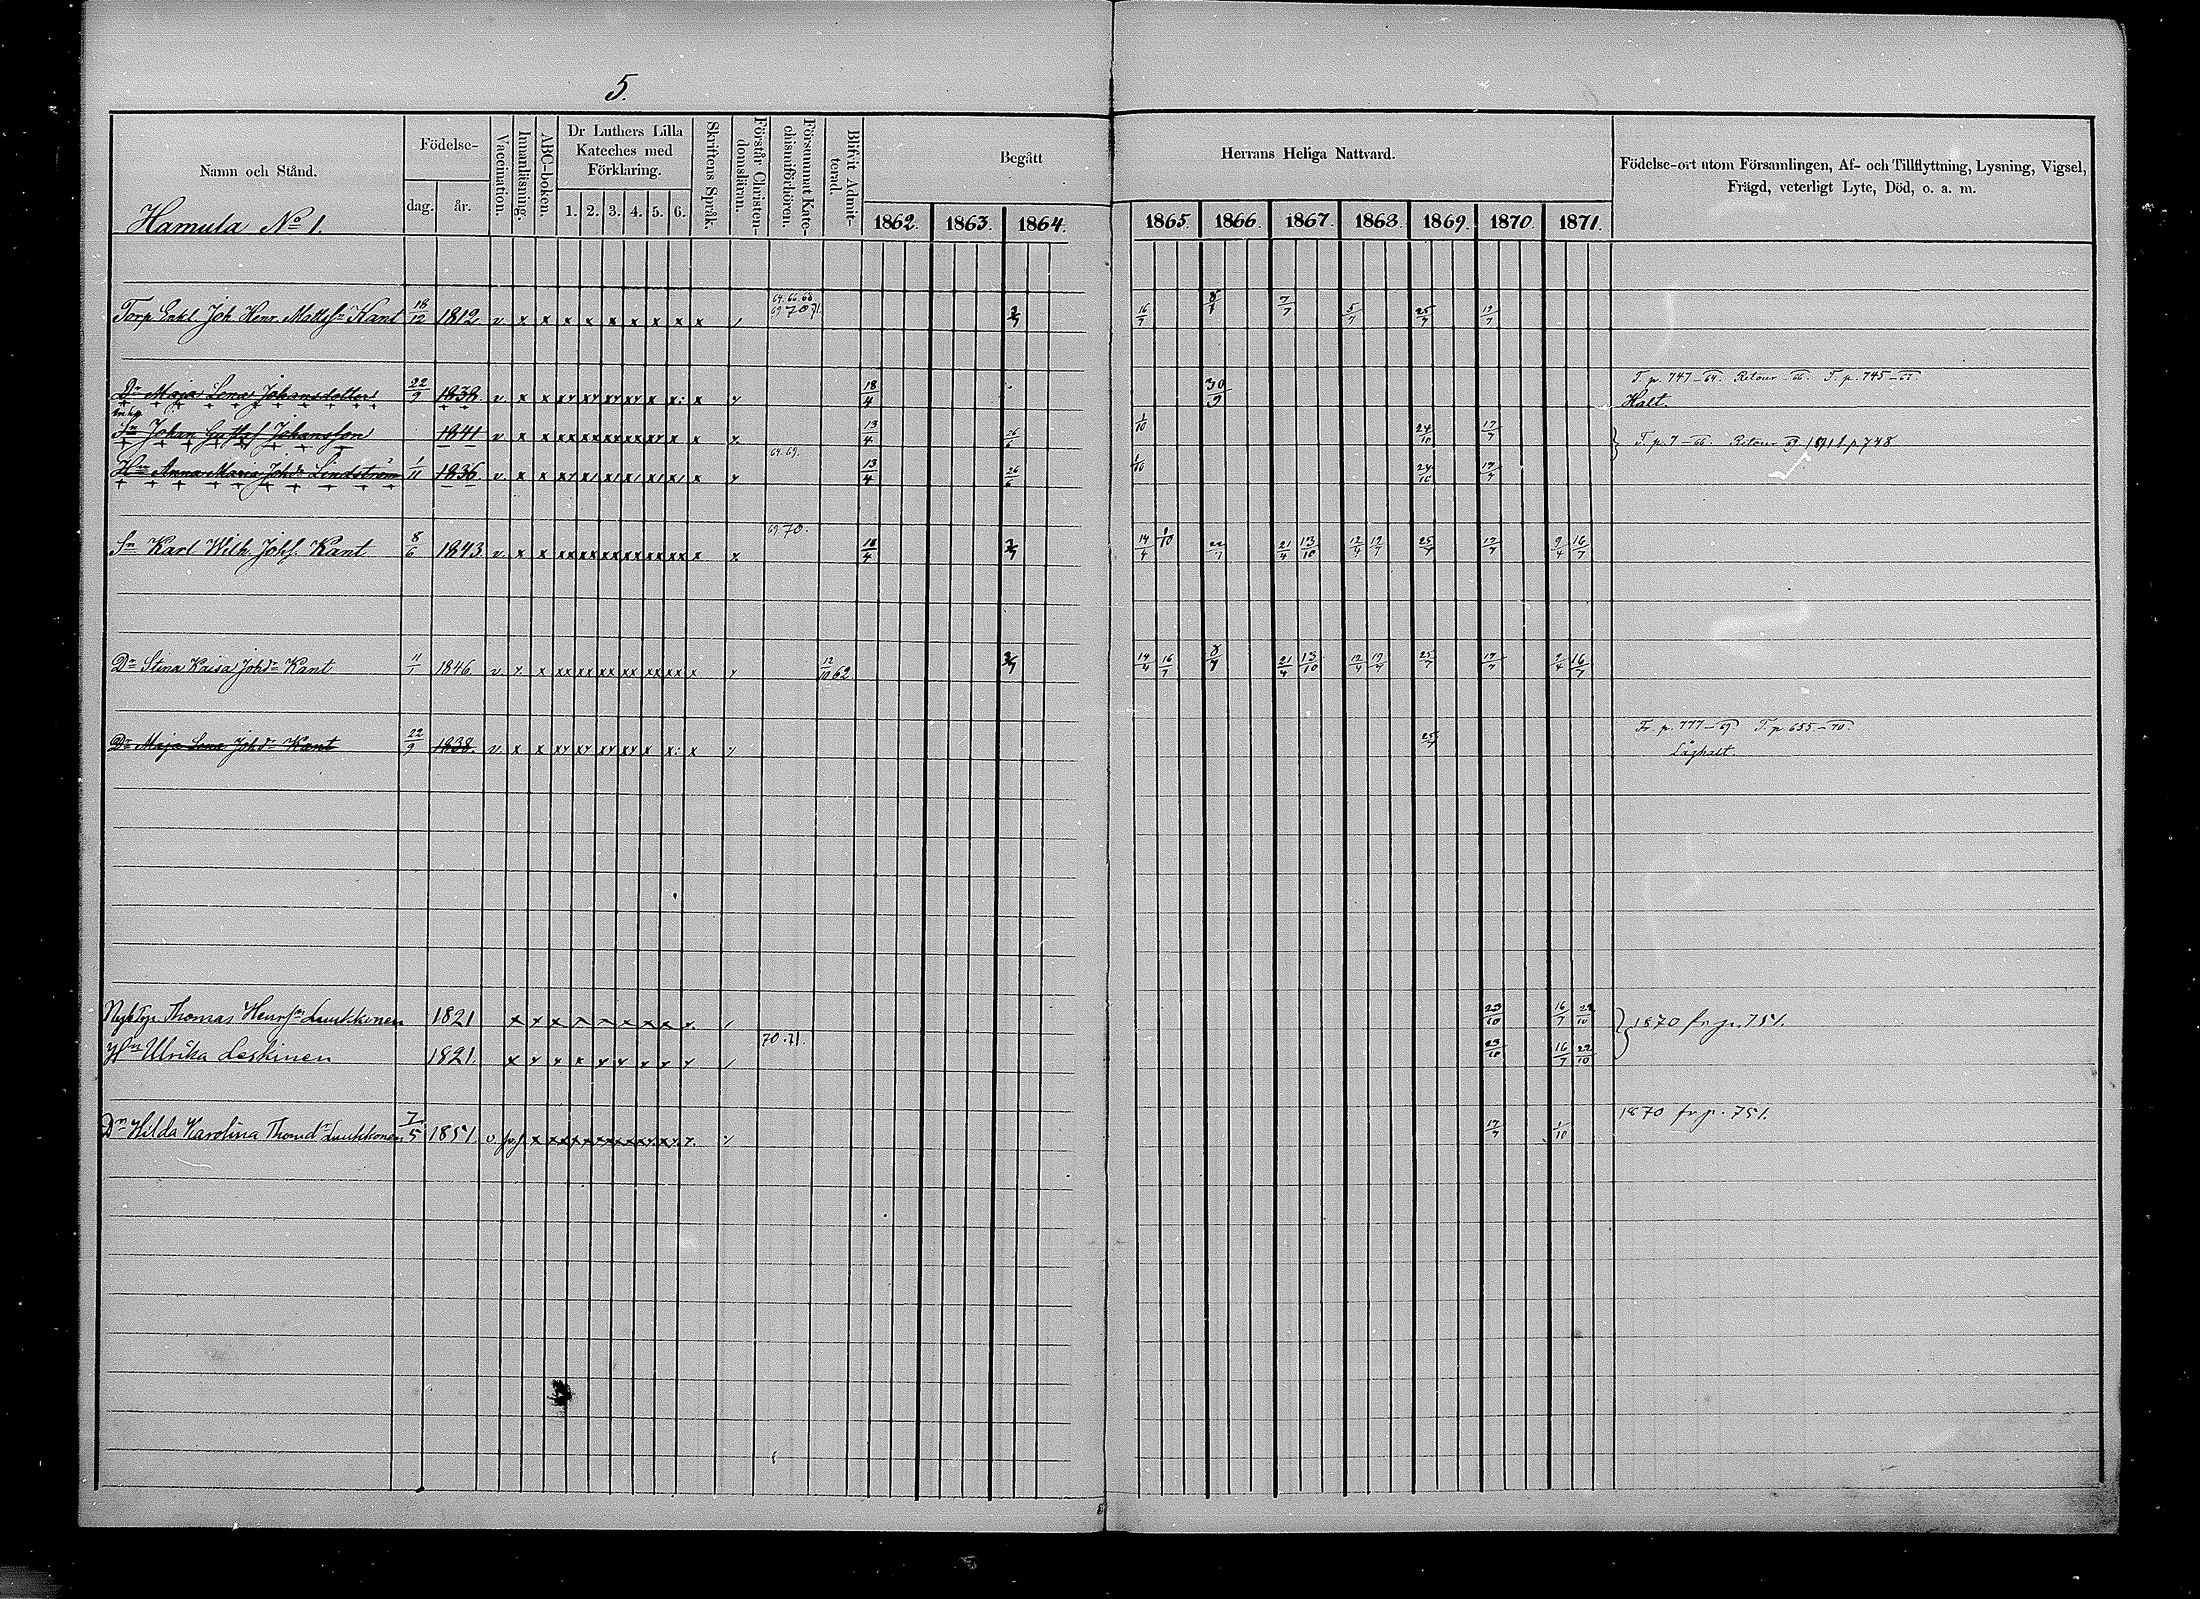 5.
Namn och Stånd. Födelse- dag. år. Vaccination. Innanläsning. ABC-boken. Dr Luthers Lilla Kateches med Förklaring. 1. 2. 3. 4. 5. 6. Skriftens Språk. Förstår Christendomslärnn. Försummat Katechismiförhören. Blifvit Admitterad. Begått Herrans Heliga Nattvard. Födelse-ort utom Församlingen, Af- och Tillflyttning, Lysning, Vigsel, Frägd, veterligt Lyte, Död, o. a. m.
1862. 1863. 1864. 1865. 1866. 1867. 1868. 1869. 1870. 1871.
Hamula No 1.
64. 66. 68
Torp Enkl. Joh. Henr. Matts Sn Kant 18/12 1812. v x x x x x x x x x / 69 70 71 16/7 7/7 5/7 25/7 17/7
T. p. 747 - 64. Retour - 66. T. p. 745 - 67.
Dr Maja Lena Johansdotter 22/9 1838 v x x xy xy xy xy x x: x y 18/4 30/9 Halt.
Sn Johan Gustaf Johansson 1841 v x x xx xx xx xx xy x x x 13/4 26/6 1/10 24/10 17/7 T. p. 7 - 66. Retour 69 1871 t. p 748
64. 69.
Hu Anna Maria Johdr Lindström 1/11 1836. v x x x y 13/4 26/6 1/10 24/10 17/7
69 70.
Sn Karl Wilh. Johs. Kant 8/6 1843 v x x xx xx xx xx xx xx x x 18/4 14/4 1/10 22/7 21/4 13/10 12/4 17/7 25/7 17/7 9/4 16/7
Dr Stina Kaisa Johdr Kant 11/1 1846. v y x xx xx xx xx xx xx x y 12/10 62 14/4 16/7 8/7 21/4 13/10 12/4 17/7 25/7 17/7 9/4 16/7
Fr. p. 777 - 69 T. p 655 - 70
Dr Maja Lena Johdr Kant 22/9 1838. v x x xy xy xy xy x x: x y 25/7 Låghalt.
Thomas Henrsn Luukkinen 1821 / 23/10 16/7 22/10 1870 fr. p. 751.
70. 71.
Hu Ulrika Leskinen 1821. / 23/10 16/7 22/10
1870 fr. p. 751.
Dr Hilda Karolina Thomdr Luukkonen 7/5 1851. v y 17/7 1/10